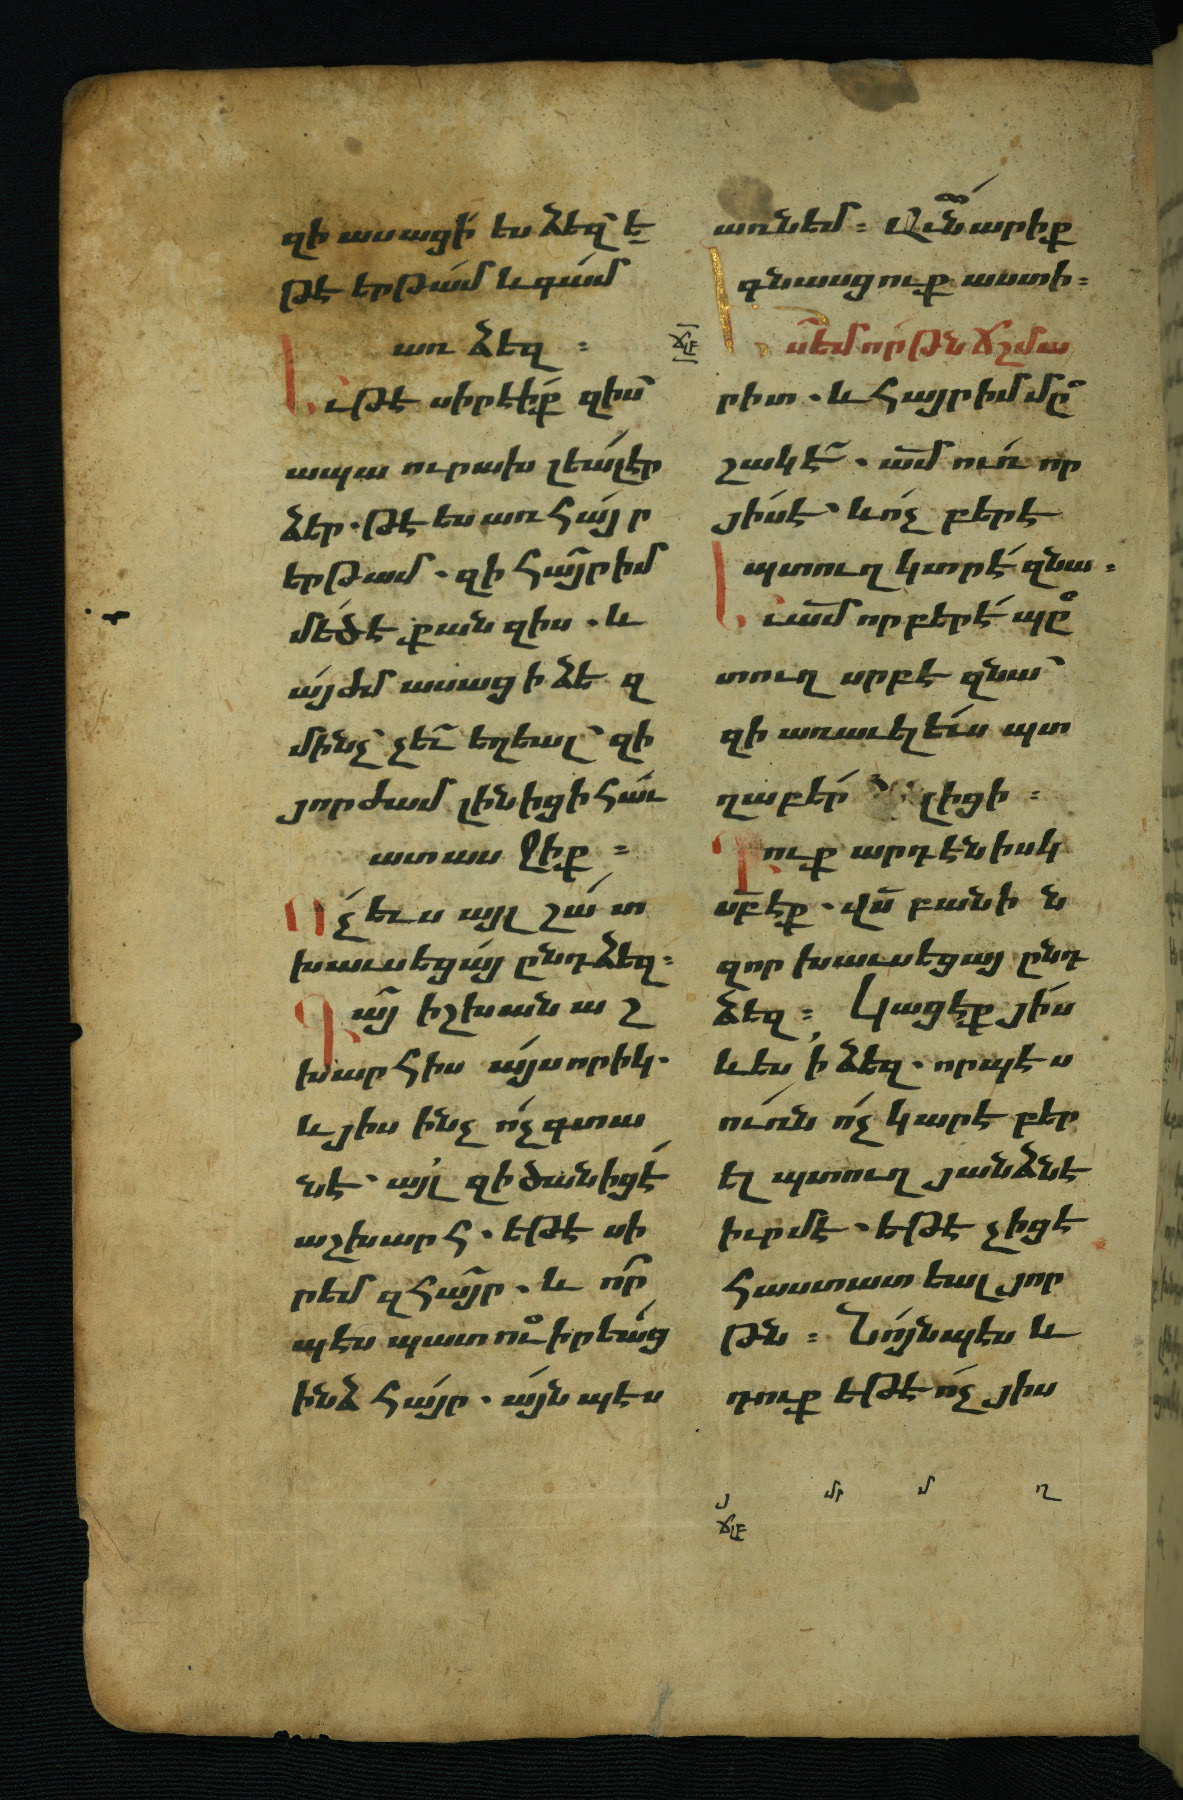 զի ասացի ես ձեզ ե
թէ երթամ և գամ
առ ձեզ ։
Եւ թէ սիրէիք զիս
ապա ուրախ լեալ էր
ձեր . թէ ես առ հայր
երթամ . զի հայր իմ
մեծ է քան զիս . և
այժմ ասացի ձեզ
մինչ չեւ եղեալ զի
յորժամ լինիցի հաւ
ատասջիք ։
Ոչ ևս այլ շատ
խաւսեցայ ընդ ձեզ ։
Գայ իշխան աշ
խարհիս այսորիկ .
և յիս ինչ ոչ գտա
նէ այլ զի ծանիցէ
աշխարհ . եթէ սի
րեմ զհայր . և որ
պէս պատուիրեաց
ինձ հայր . այնպէս
առնեմ ։ Արիք
գնասցուք աստի ։
ՃԼԵ
եմ որթն ճշմա
րիտ . և հայր իմ մը
շակ է . ամ ուռ որ
յիս է և ոչ բերէ
պտուղ կտրէ զնա ։
Եւ ամ որ բերէ պը
տուղ սրբէ զնա
զի առաւել ևս պտ
ղաբեր լիցի ։
Դուք արդէն իսկ
սբ էք . վս բանին
զոր խաւսեցայ ընդ
ձեզ ։ Կացէք յիս
և ես ի ձեզ . որպէս
ուռն ոչ կարէ բեր
ել պտուղ յանձնէ
իւրմէ . եթէ չիցէ
հաստատեալ յոր
թն ։ Նոյնպէս և
դուք եթէ ոչ յիս
յ մր մ ղ
ՃԼԵ